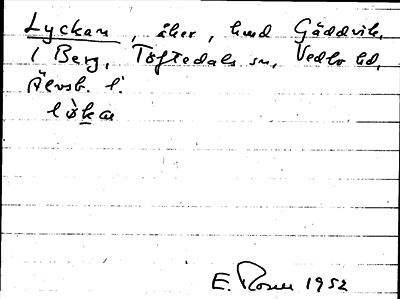 Lyckan, åker, hmd Gäddvik,
i Berg, Töftedals sn, Vedbo hd,
Älvsb. l.
lòkan
E. Rosén 1952